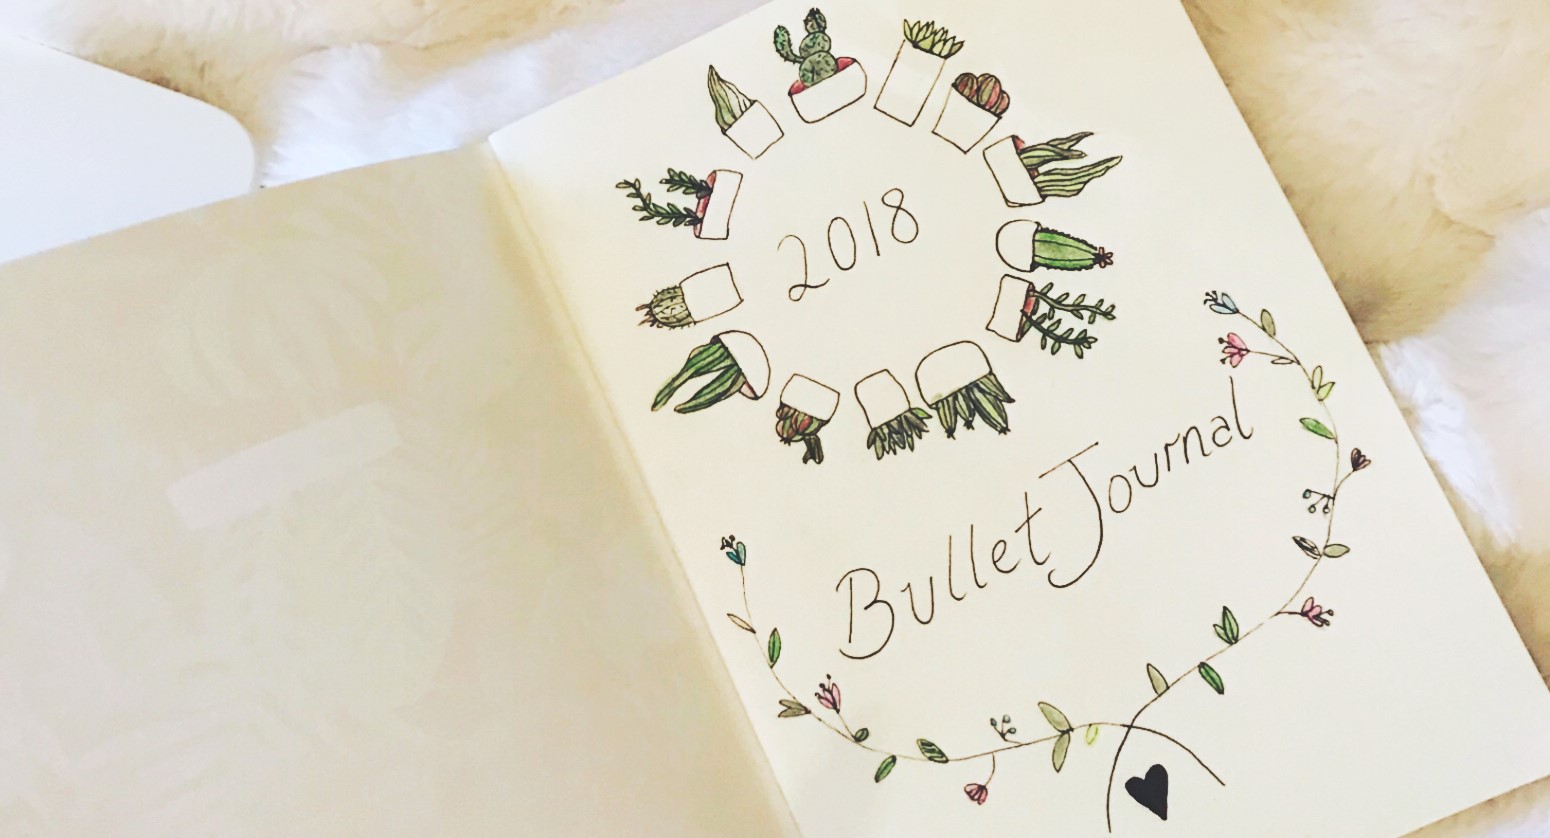 2018
Bullet Journal